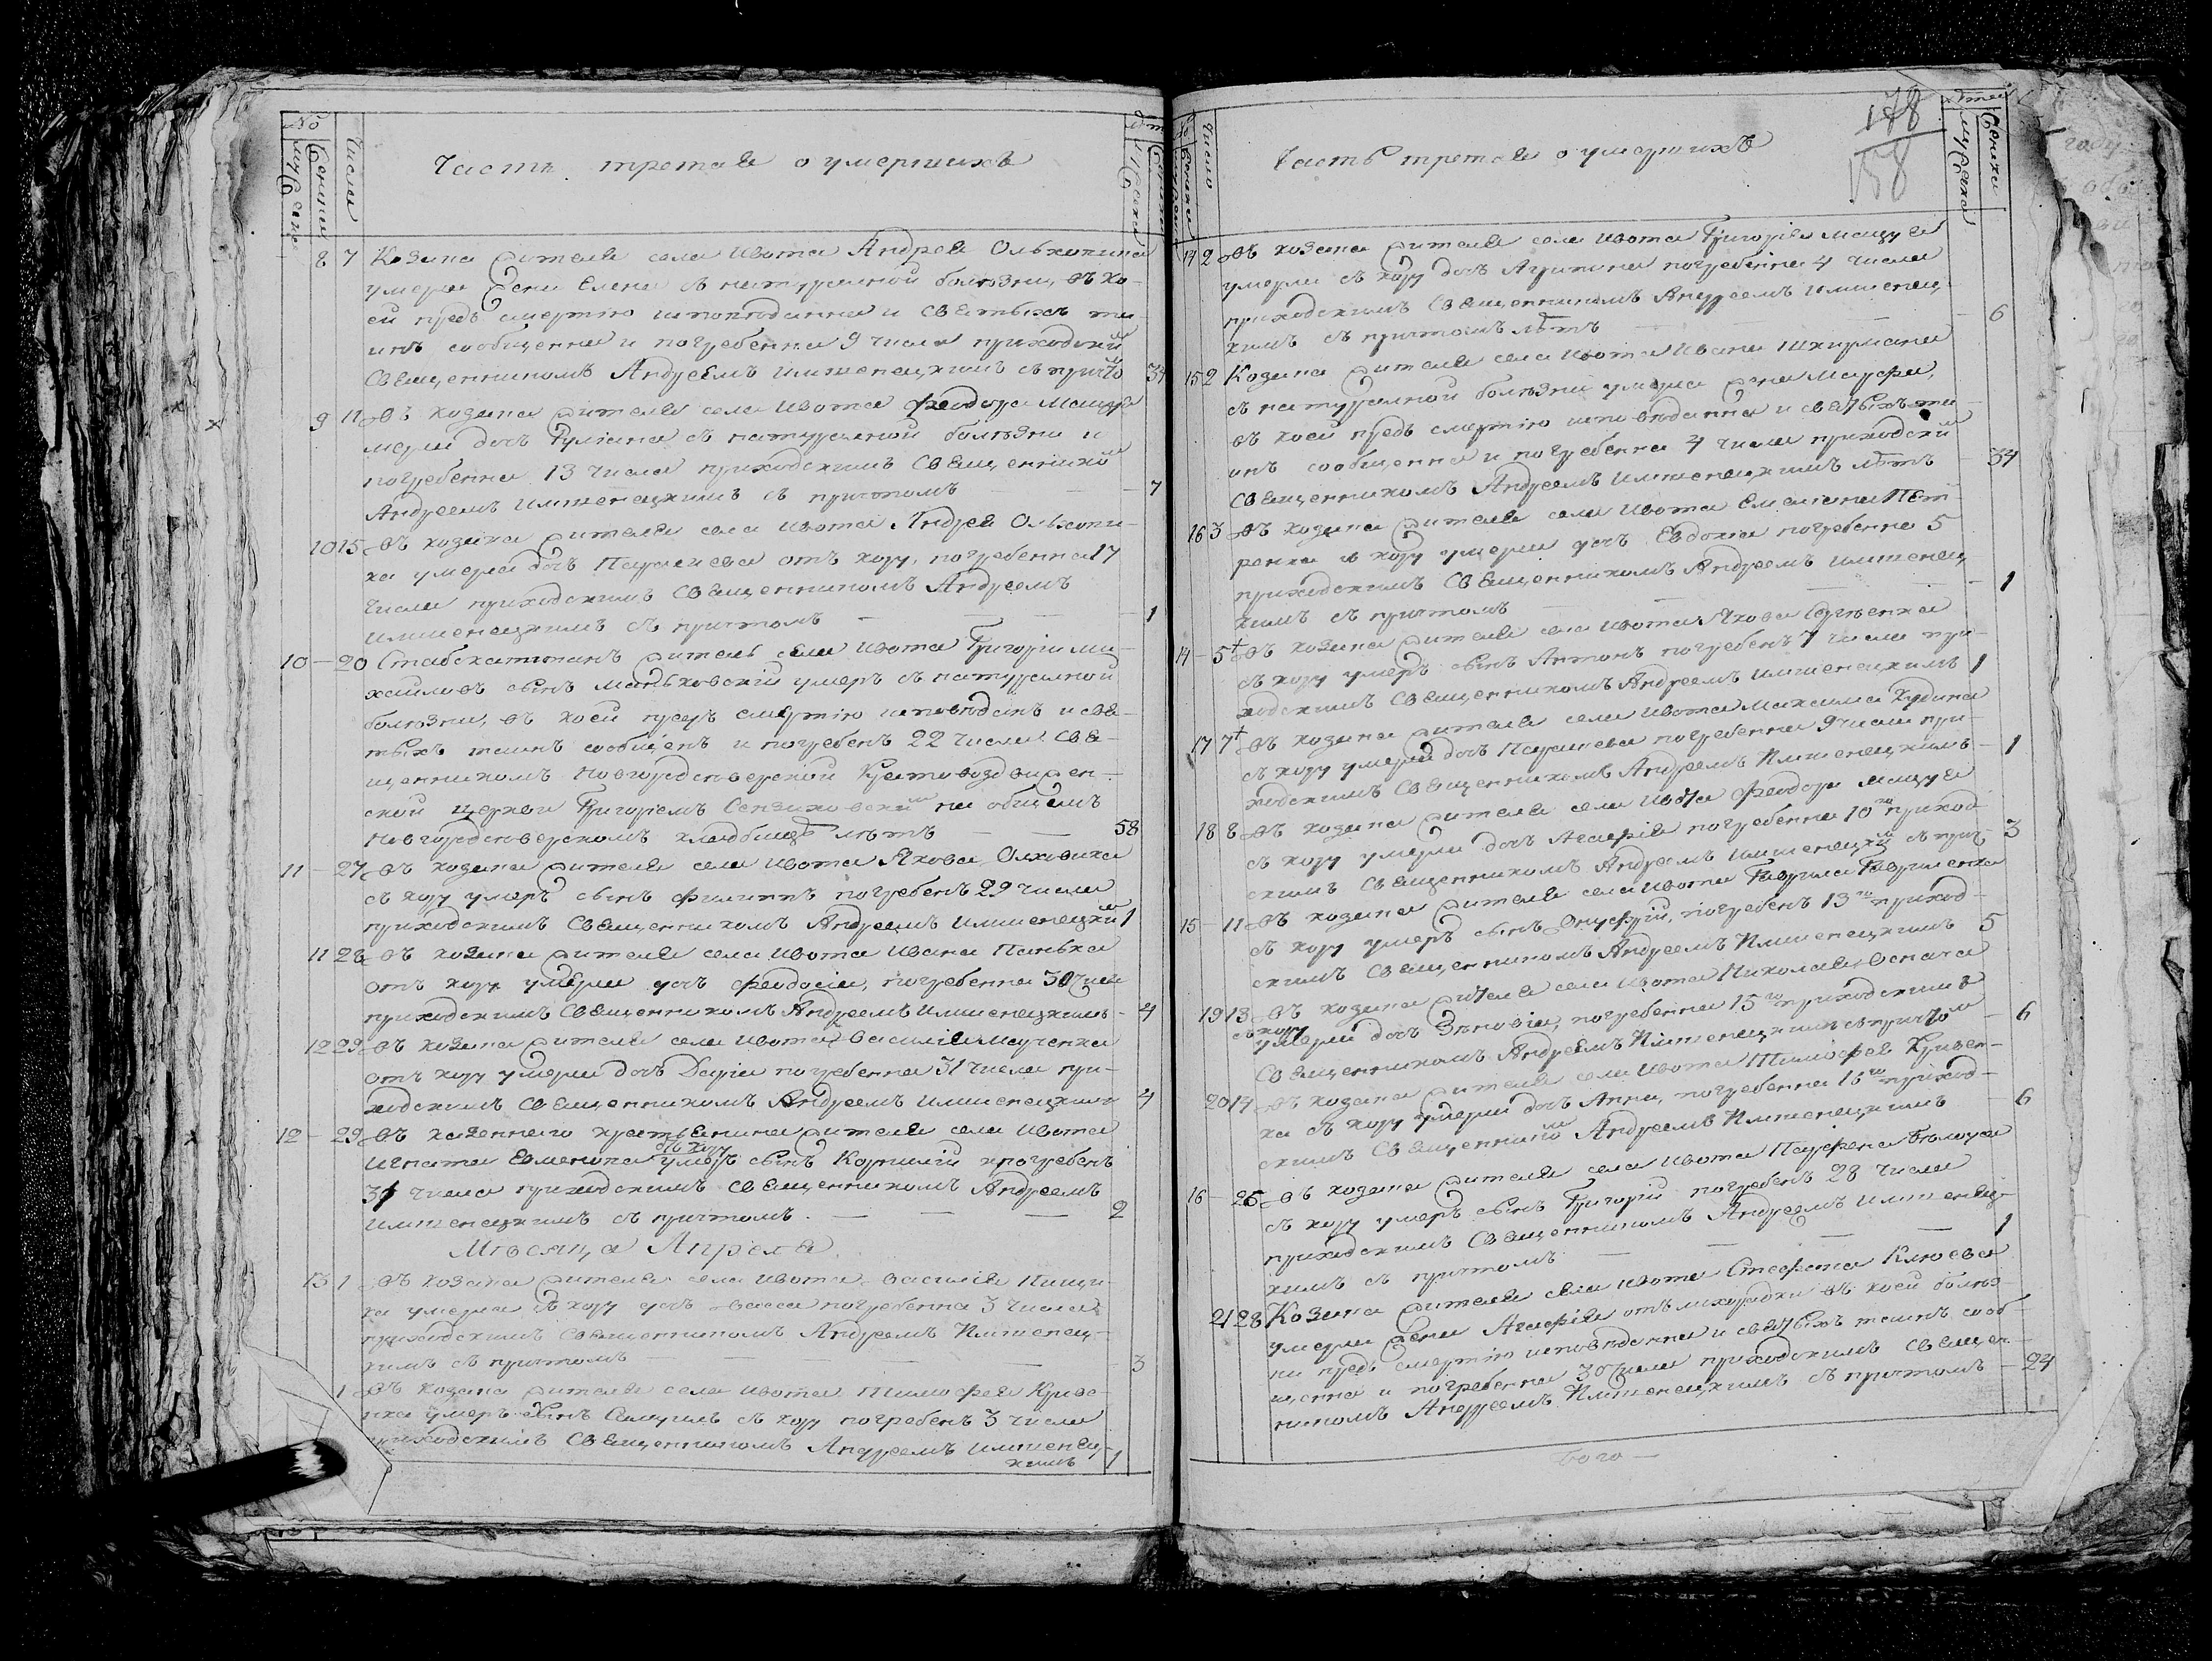 №
Числа
Часть третая о умершихъ
8 7 Козака жителя села Ивота Андрея Ольховика
умерла жена Елена съ натуральной болѣзни, въ ко-
ей предъ смертію исповѣданна и святыхъ та-
инъ сообщенна и погребенна 9 числа приходскимъ
Священникомъ Андреемъ Имшенецкимъ съ причто 34
9 11 Въ козака жителя села Ивота Феодора Мацуя
мерла дочь Іуліана съ натуральной болѣзни и
погребенна 13 числа приходскимъ Священнико
Андреемъ Имшенецкимъ съ причтомъ — — 7
10 15 Въ козака жителя села Ивота Андрея Ольхови-
ка умерла дочь Параскева отъ кору, погребенна 17
Числа приходскимъ Священникомъ Андреемъ
Имшенецкимъ съ причтомъ — — — 1
10 — 20 Стабскапитанъ житель села Ивота Григорій Ми-
хайловъ сынъ Маньковскій умеръ съ натуральной
болѣзни, въ коей предъ смертію исповѣданъ и свя-
тыхъ таинъ сообщенъ и погребенъ 22 числа Свя-
щенникомъ Новгородсѣверской Крестовоздвижен-
ской церкви Григоріемъ на общемъ
Новгородсѣверскомъ кладбищѣ лѣтъ — — 58
11 — 27 Въ козака жителя села Ивота Якова Олховика
съ кору умеръ сынъ Филиппъ погребенъ 29 числа
приходскимъ Священникомъ Андреемъ Имшенецкимъ 1
11 28 Въ козака жителя села Ивота Ивана Панька
отъ кору умерла дочь Феодосія, погребенна 30 числа
приходскимъ Священникомъ Андреемъ Имшенецкимъ — 4
12 29 Въ козака жителя села Ивота Василія
отъ кору умерла дочь Дарія погребенна 31 числа при-
ходскимъ Священникомъ Андреемъ Имшенецкимъ 4
12 — 29 Въ казеннаго крестьянина жителя села Ивота
Игната умеръ съ кору сынъ Корнилій и погребенъ
31 числа приходскимъ Священникомъ Андреемъ
Имшенецкимъ съ причтомъ. — — — 2
Мѣсяца Апреля
13 1 Въ козака жителя села Ивота Василія
ка умерла съ кору дочь Васса погребенна 3 числа
приходскимъ Священникомъ Андреемъ Имшенец-
кимъ съ причтомъ — — — 3
1 Въ козака жителя села Ивота Тимофея Криве-
нка умеръ сынъ Самуилъ съ кору погребенъ 3 числа
приходскимъ Священникомъ Андреемъ Имшенец-
кимъ 1
178
158
Число
Часть третая о умершихъ
14 2 Въ козака жителя села Ивота Григорія Мацуя
умерла съ кору дочь Агрипина погребенна 4 числа
приходскимъ Священникомъ Андреемъ Имшенец-
кимъ съ причтомъ лѣтъ — — — 6
15 2 Козака жителя села Ивота Ивана Шкирмана
съ натуральной болѣзни умерла жена Марфа,
въ коей предъ смертію исповѣданна и святыхъ та-
инъ сообщенна и погребенна 4 числа приходскимъ
Священникомъ Андреемъ Имшенецкимъ лѣтъ — 34
16 3 Въ козака жителя села Ивота Емеліана Пет-
ренка съ кору умерла дочь Евдокія погребенна 5
приходскимъ Священникомъ Андреемъ Имшенец-
кимъ съ причтомъ — — — 1
14 — 5 Въ козака жителя села Ивота Якова
съ кору умеръ сынъ Антонъ погребенъ 7 числа при-
ходскимъ Священникомъ Андреемъ Имшенецкимъ 1
17 7 Въ козака жителя села Ивота Максима
съ кору умерла дочь Параскева погребенна 9 числа при-
ходскимъ Священникомъ Андреемъ Имшенецкимъ — 1
18 8 Въ козака жителя села Ивота Феодора Мацуя
съ кору умерла дочь Агафія погребенна 10го приход-
скимъ Священникомъ Андреемъ Имшенецкимъ съ прич- 3
15 — 11 Въ козака жителя села Ивота Гаврила Гавриленка
съ кору умеръ сынъ Онуфрій, погребенъ 13го приход-
скимъ Священникомъ Андреемъ Имшенецкимъ 5
19 13 Въ козака жителя села Ивота Николая Осмака
съ кору умерла дочь Зѣновія, погребенна 15го приходскимъ
Священникомъ Андреемъ Имшенецкимъ съ причтом — 6
20 14 Въ козака жителя села Ивота Тимофея Кривен-
ка съ кору умерла дочь Анна, погребенна 16го приход-
скимъ Священником Андреемъ Имшенецкимъ — 6
16 — 26 Въ козака жителя села Ивота Парфена
съ кору умеръ сынъ Григорій погребенъ 28 числа
приходскимъ Священникомъ Андреемъ Имшенец-
кимъ съ причтомъ — — — 1
21 28 Козака жителя села Ивота Стефана Клюева
умерла жена Агафія отъ лихорадки въ коей болѣз-
ни предъ смертію исповѣданна и святыхъ таинъ сооб-
щенна и погребенна 30 числа приходскимъ Священ-
никомъ Андреемъ Имшенецкимъ съ причтомъ — 24